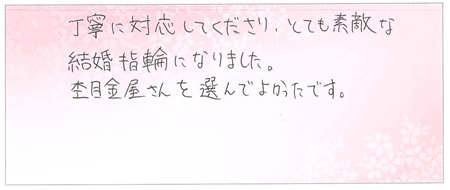 丁寧に対応してくださり、とても素敵な
結婚指輪になりました。
杢目金屋さんを選んでよかったです。